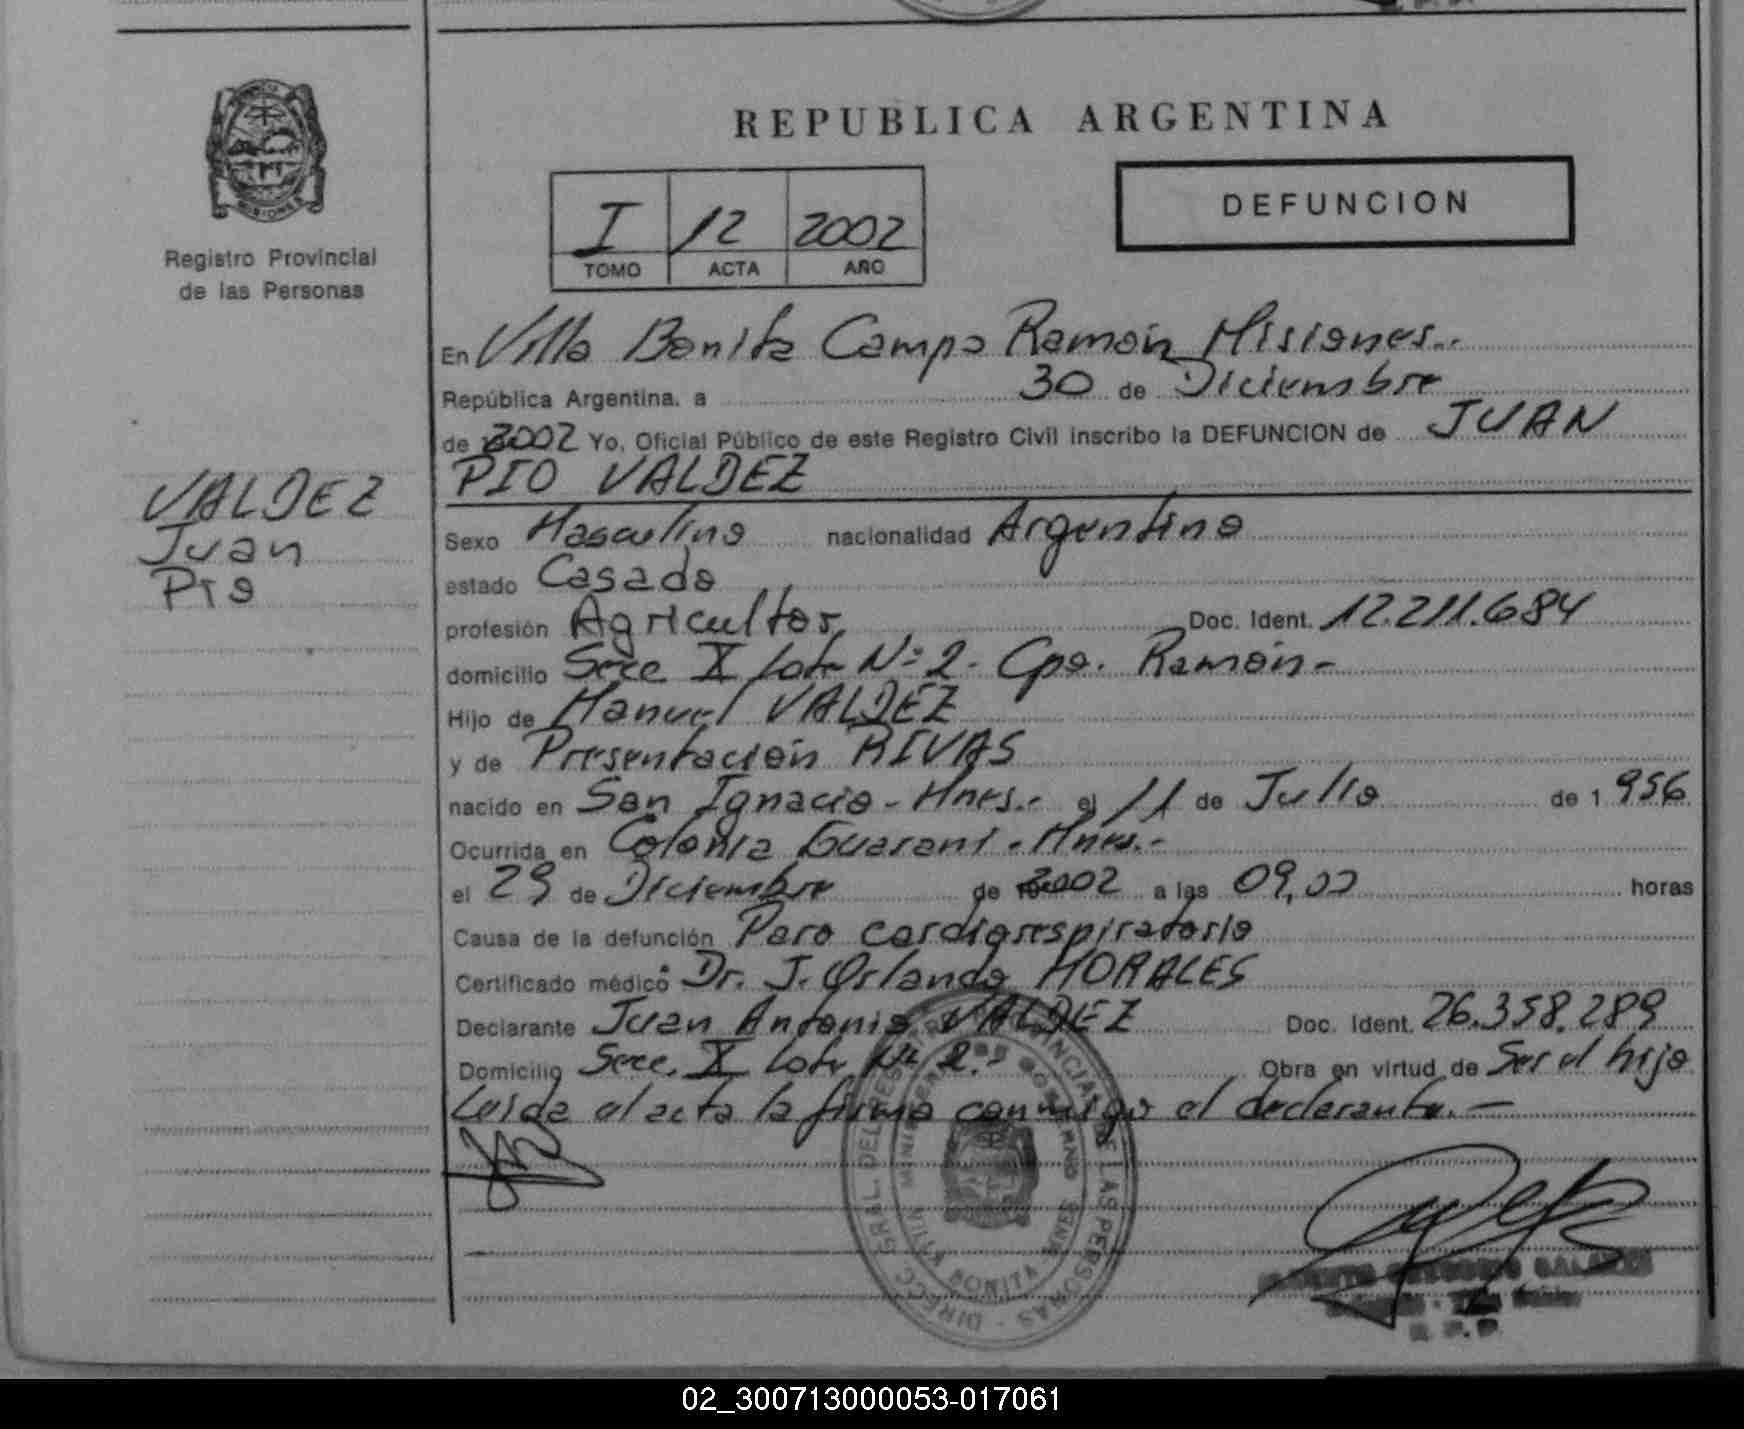 REPUBLICA ARGENTINA
I 12 2002
TOMO ACTA AÑO
DEFUNCION
MISIONES
Registro Provincial
de las Personas
En Villa Bonita Campo Ramón Misiones.-
República Argentina, a 30 de Diciembre
de 2002 Yo, Oficial Público de este Registro Civil inscribo la DEFUNCION de JUAN
PIO VALDEZ
VALDEZ
Juan
Pio
Sexo Masculino nacionalidad Argentino
estado Casado
profesión Agricultor Doc. Ident. 12.211.684
domicilio Secc X Lote Nº 2. Cpo. Ramón-
Hijo de Manuel VALDEZ
y de Presentación RIVAS
nacido en San Ignacio - Mnes.- el 11 de Julio de 1 956
Ocurrida en Colonia Guarani - Mnes.-
el 29 de Diciembre de 2002 a las 09,00 horas
Causa de la defunción Paro cardiorespiratorio
Certificado médico Dr. J. Orlando MORALES
Declarante Juan Antonio VALDEZ Doc. Ident. 26.358.289
Domicilio Secc. X Lote Nº 2.- Obra en virtud de Ser el hijo
Leida el acta la firma conmigo el declarante. —
DIRECC. GRAL. DEL REGISTRO PROVINCIAL DE LAS PERSONAS
MINISTERIO DE GOBIERNO
VILLA BONITA - MNES
R. P. P.
02_300713000053-017061